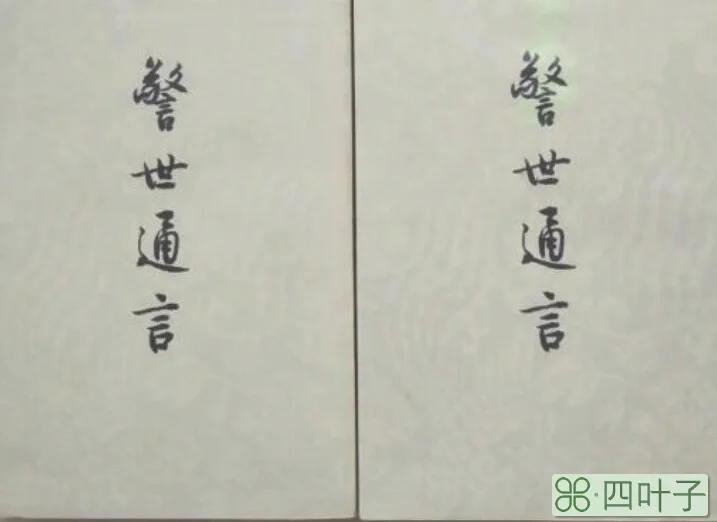 警世通言
警世通言
四叶子